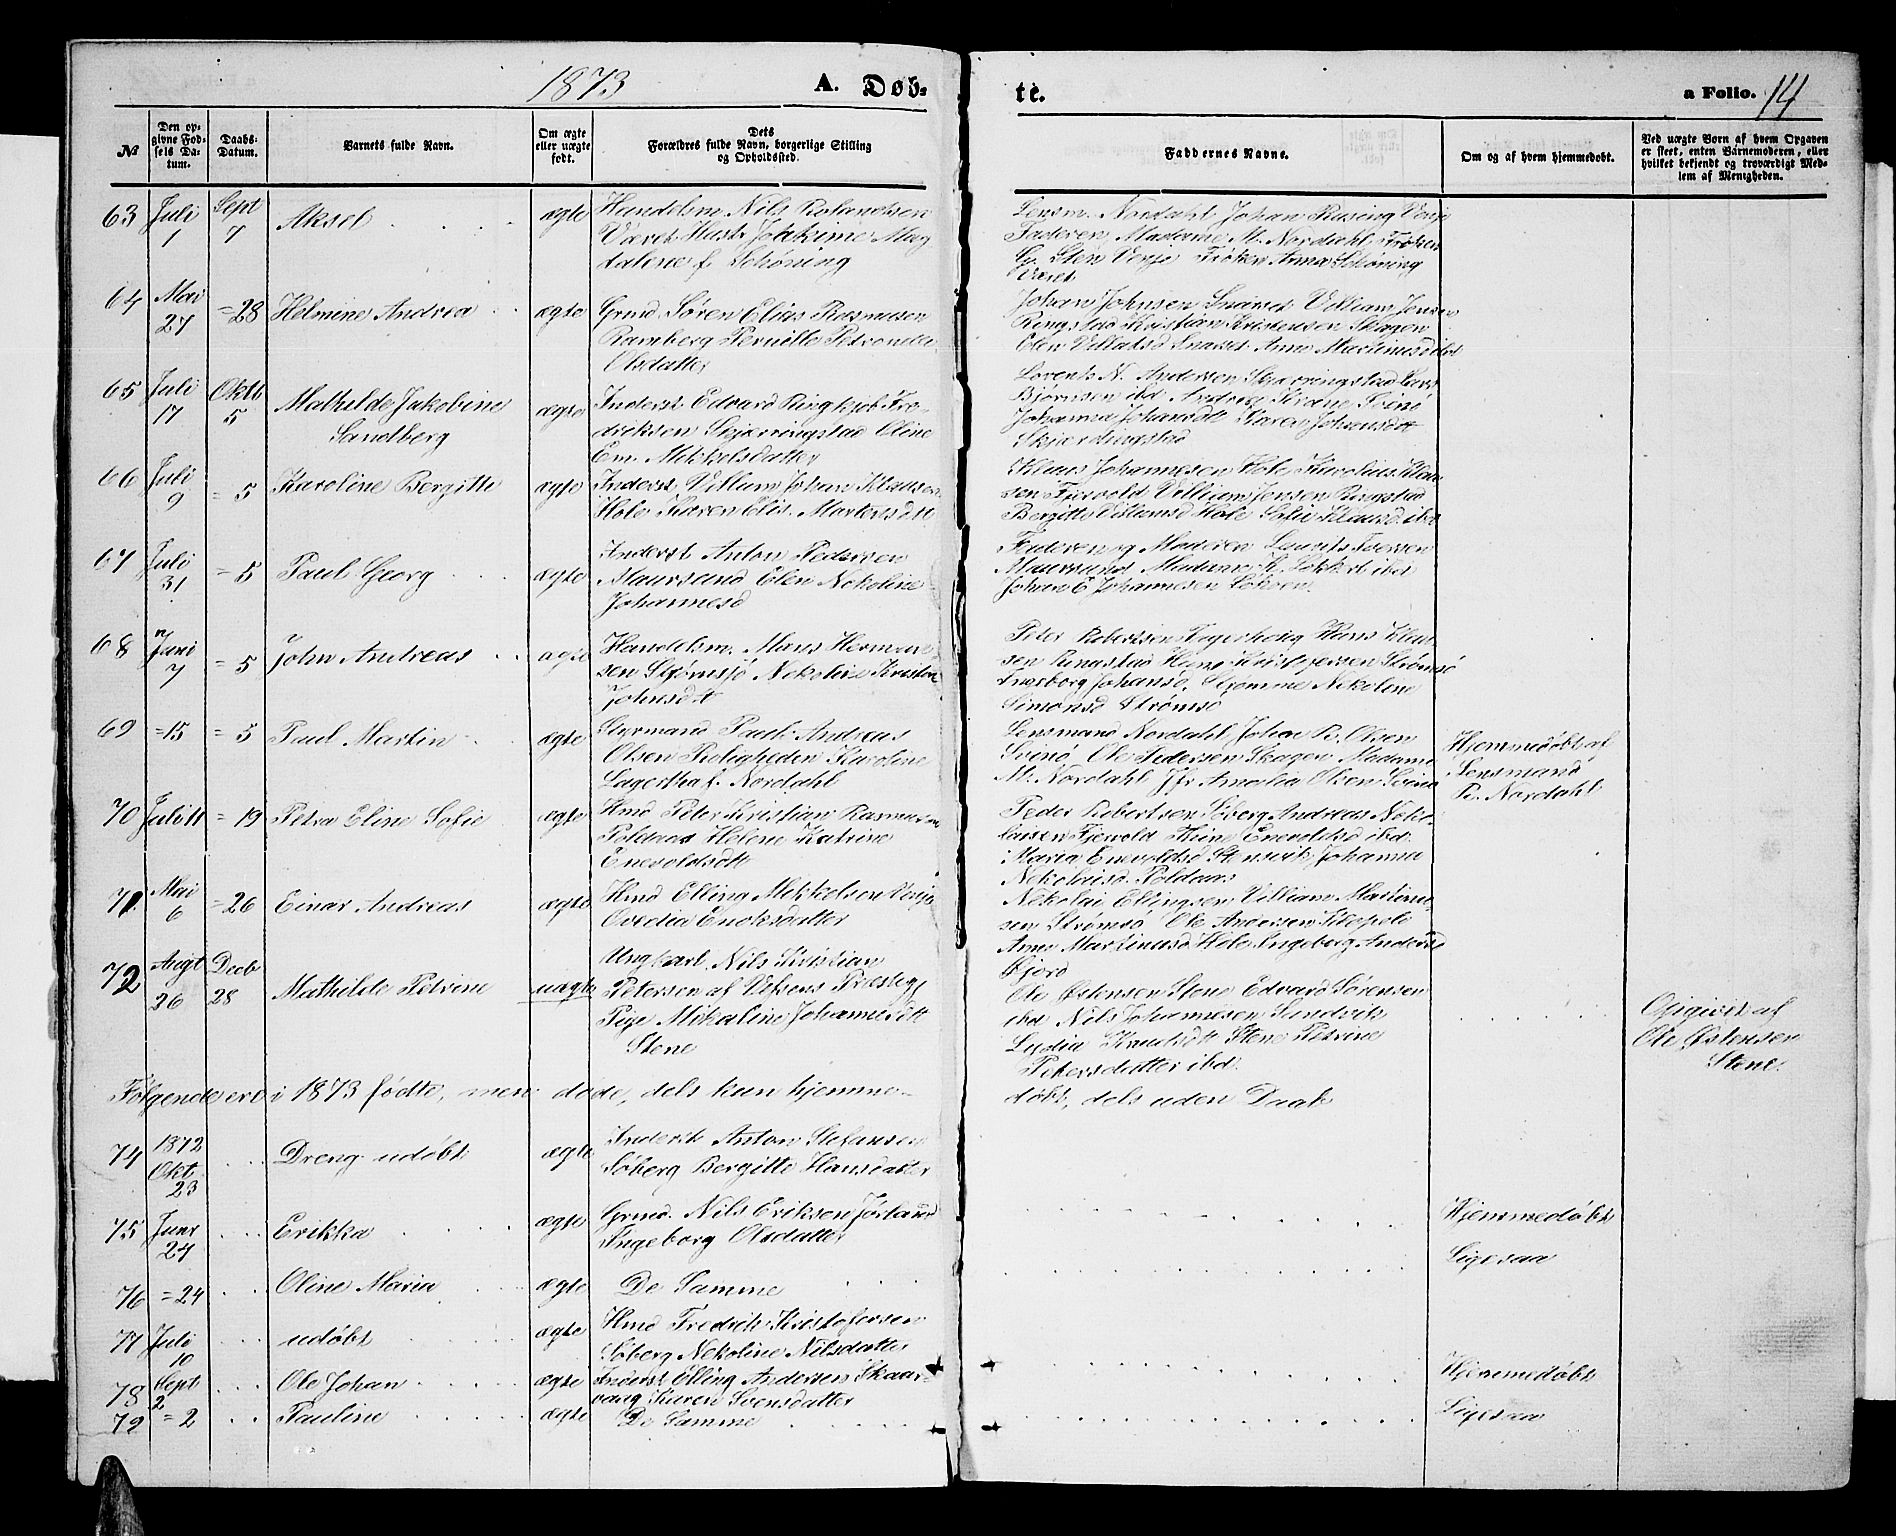 1873
A. Døb-
te.
a Folio. 14
№
Den op-
givne Fød-
sels Da-
tum.
Daabs-
Datum.
Barnets fulde Navn.
Om ægte
eller uægte
født.
Dets
Forældres fulde Navn, borgerlige Stilling
og Opholdssted.
Faddernes Navne.
Om og af hvem hjemmedøbt.
Ved uægte Børn af hvem Opgaven
er skeet, enten Barnemoderen, eller
hvilket bekjendt og troværdigt Med-
lem af Menigheden.
63 Juli 1 Sept 7 Aksel ægte Handelsm. Nils Rolandsen
Været Hust. Johkime Mag
dalene f. Schøning
Lensm. Nordahl Johan Rusing Venje
Faderen, Madame M. Nordahl Frøken
G. Sten Venje Frøken Anna Schøning
Været
64 Mai 27 = 28 Helmine Andrea ægte Grmd Søren Elias Rasmusen
Ramberg Pernille Petronda
Olsdatter
Johan Johnsen Snarset Villiam Jensen
Ringstad Kristian Kristensen Skagen
Elen Villadsd Snarset Anne Martinusd ibd
65 Juli 17 Oktb 5 Mathilde Jakobine
Sandberg ægte Inderst Edvard Ringkjøb Fre-
driksen Skjærringstad Oline
Em. Mikkelsdatter
Lorents N. Andersen Skjærringstad Lars
Bjørnsen ibd Andreg Krane Svinø
Johanna Johansdt Karen Johansdt
Skjærdingstad
66 Juli 9 = 5 Karoline Bergitte ægte Inderst Villum Johan Klausen
Hole Karen Elis. Mortensdtt
Klaus Johannesen Hole Karolius Klau
sen Fjervold Villiam Jensen Ringstad
Bergitte Villumsd Hole Sofie Klausd. ibd
67 Juli 31 = 5 Paul Georg ægte Inderst Anton Pedersen
Maursund Elen Nekoline
Johannesd
Faderen og Moderen Laurits Iversen
Maursund Madam K. Lokkert ibd
Johan E Johannesen Løksen.
68 Juni 7 = 5 John Andreas ægte Handelsm. Mans Herman
sen Strømsjø Nekoline Kristine
Johnsdtt
Peter Robertsen Vagerhoug Hans Klau
sen Ringstad Hans Kristofersen Strømsø
Ingeborg Johansd. Strømme Nekoline
Simonsd Strømsø
69 =15 = 5 Paul Martin ægte Styrmand Paul Andreas
Olsen Roligheden Karoline
Lagertha f. Nordahl
Lensmand Nordahl Johan B. Olsen
Svinø Ole Pedersen Skagen Madame
M. Nordahl Jfr Amalia Olsen Svinø
Hjemmedøbt af
Lensmand
B. Nordahl
70 Juli 11 = 19 Petra Eline Sofie ægte Hmd Peter Kristian Rasmusen
Poldaas Helene Katrine
Enevoldsdtt
Peder Robertsen Søberg Andreas Neko-
laisen Fjervold Trine Enevoldsd ibd.
Maria Enevoldsd Stensvik Johanna
Nekolaisd Poldaas
71 Mai 6 = 26 Einar Andreas ægte Hmd Elling Mikkelsen Venje
Ovedia Enoksdatter
Nekolai Ellingsen Villiam Martinu-
sen Strømsø Ole Andersen
Anne Martinusd Hole Ingeborg Andersd
Fjord
72 Augt 26 Decb 28 Mathilde Petrine uægte Ungkarl Nils Kristian
Petersen af Vefsens Præstegj
Pige Mikaline Johannesdtt
Stene
Ole Østensen Stene Edvard Sørensen
ibd Nils Johannesen Sandvik
Lydia Knudsdtt Stene Petrine
Petersdatter ibd.
Opgivet af
Ole Østensen
Stene.
Følgende ere i 1873 fødte, men døde, dels kun hjemme-
døbt, dels uden Daab
74 1872 Okt 23 Dreng udøbt ægte Inderst Anton Stefansen
Søberg Bergitte Hansdatter
75 Juni 24 Erikka ægte Grmd. Nils Eriksen Jørland
Ingeborg Olsdatter Hjemmedøbt
76 = 24 Oline Maria ægte De Samme Ligesaa
77 Juli 10 udøbt ægte Hmd Fredrik Kristofersen
Søberg Nekoline Nilsdatter
78 Sept 2 Ole Johan ægte Inderst Elling Andersen Skaar-
vaag Karen Svensdatter Hjemmedøbt
79 = 2 Pauline ægte De Samme Ligesaa